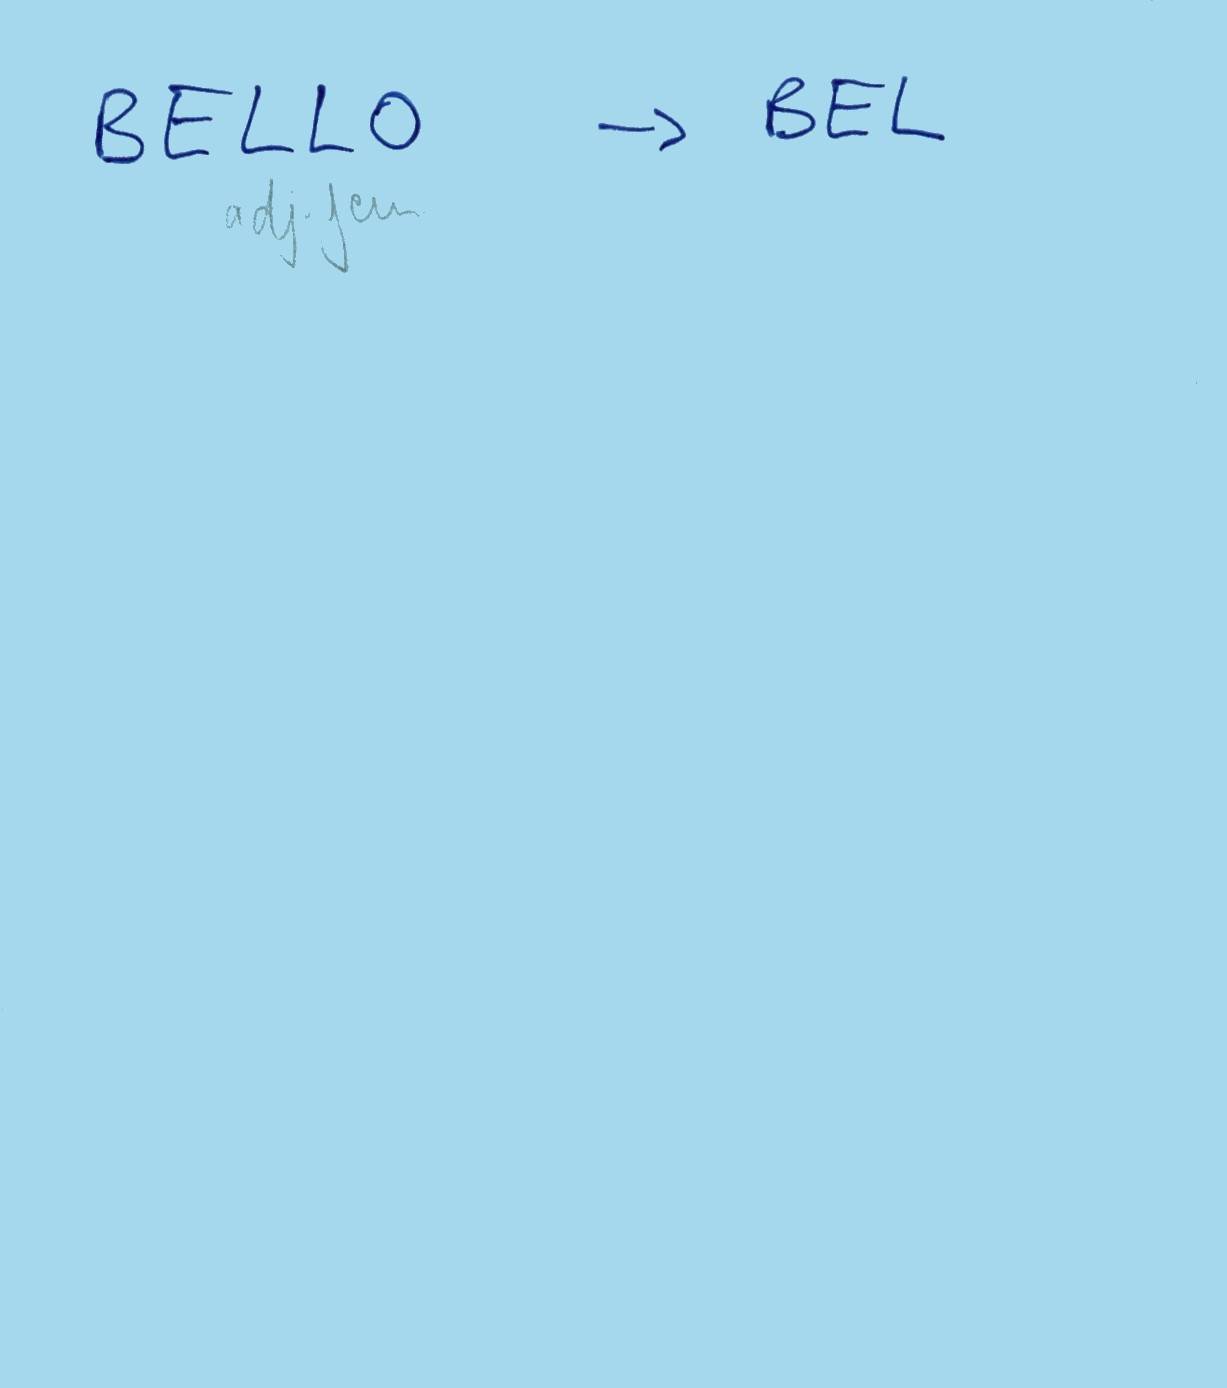 BELLO → BEL
adj. fem